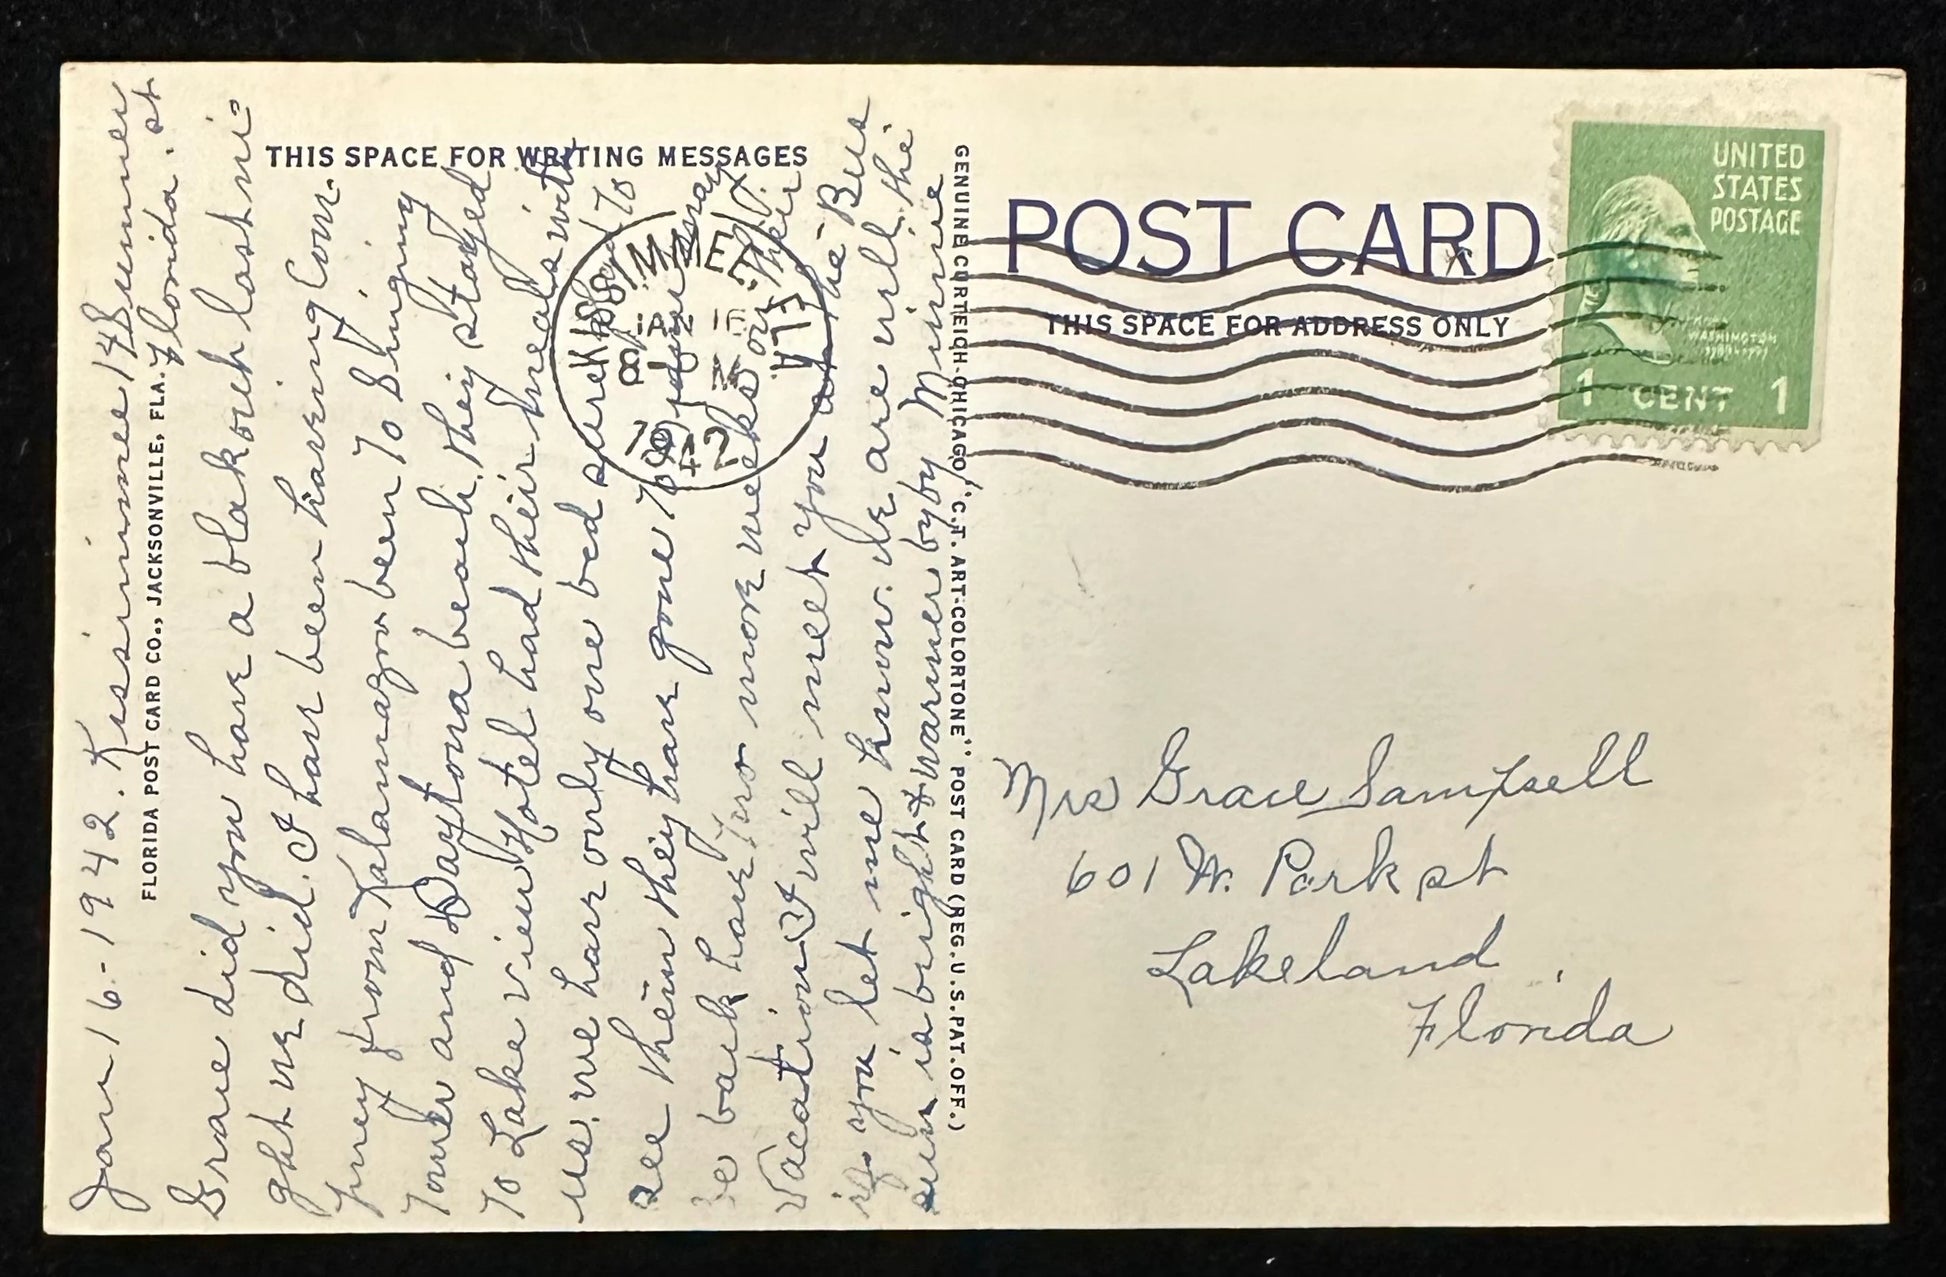 Jan 16-1942. Kissimmee 148 Summer
Florida. st
Grace did you have a blak out last ni=
ght we did. I have been having Com.
pney from Kalamazoo been To Singing
Tower and Daytona beach, they stayed
To Lake view Hotel had their meals with
us. we have only one bed
see them they have gone To
be back have two more weeks on their
Vacation I will meet you at the Bus
if you let me know. we are well. the
sun is bright & warmer by by Minnie
THIS SPACE FOR WRITING MESSAGES
FLORIDA POST CARD CO., JACKSONVILLE, FLA.
GENUINE CURTEICH-CHICAGO "C.T. ART-COLORTONE" POST CARD (REG. U.S. PAT. OFF.)
KISSIMMEE, FLA.
JAN 16
8
M
1942
POST CARD
THIS SPACE FOR ADDRESS ONLY
UNITED
STATES
POSTAGE
WASHINGTON
1 CENT 1
Mrs Grace Sampsell
601 W. Park st
Lakeland
Florida